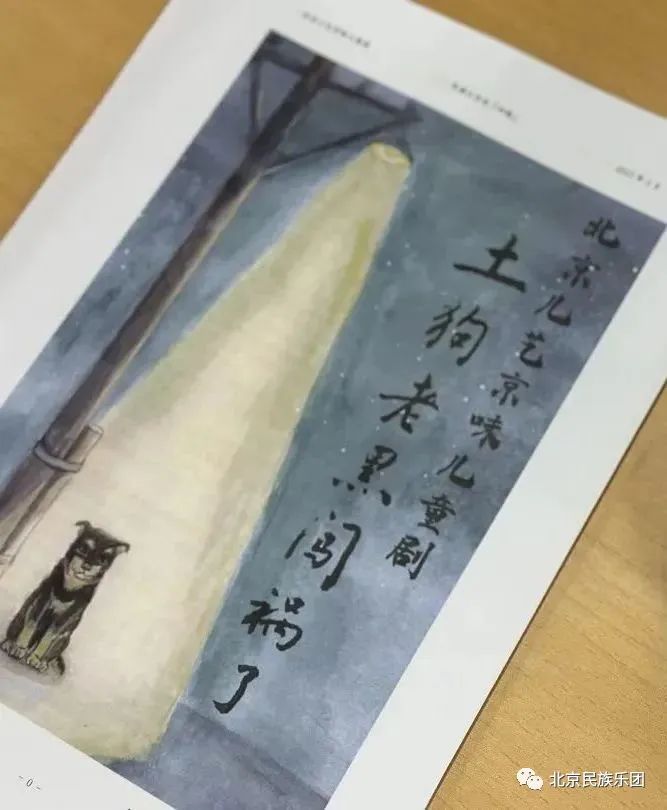 北京儿艺京味儿童剧
土狗老黑闯祸了
- 0 -
北京民族乐团